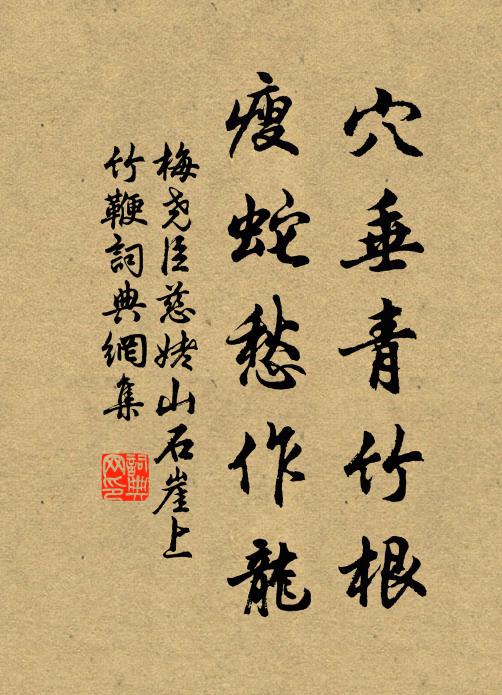 穴垂青竹根
瘦蛇愁作龍
梅尧臣慈姥山石崖上
竹鞭詞典網集
詞典
网印